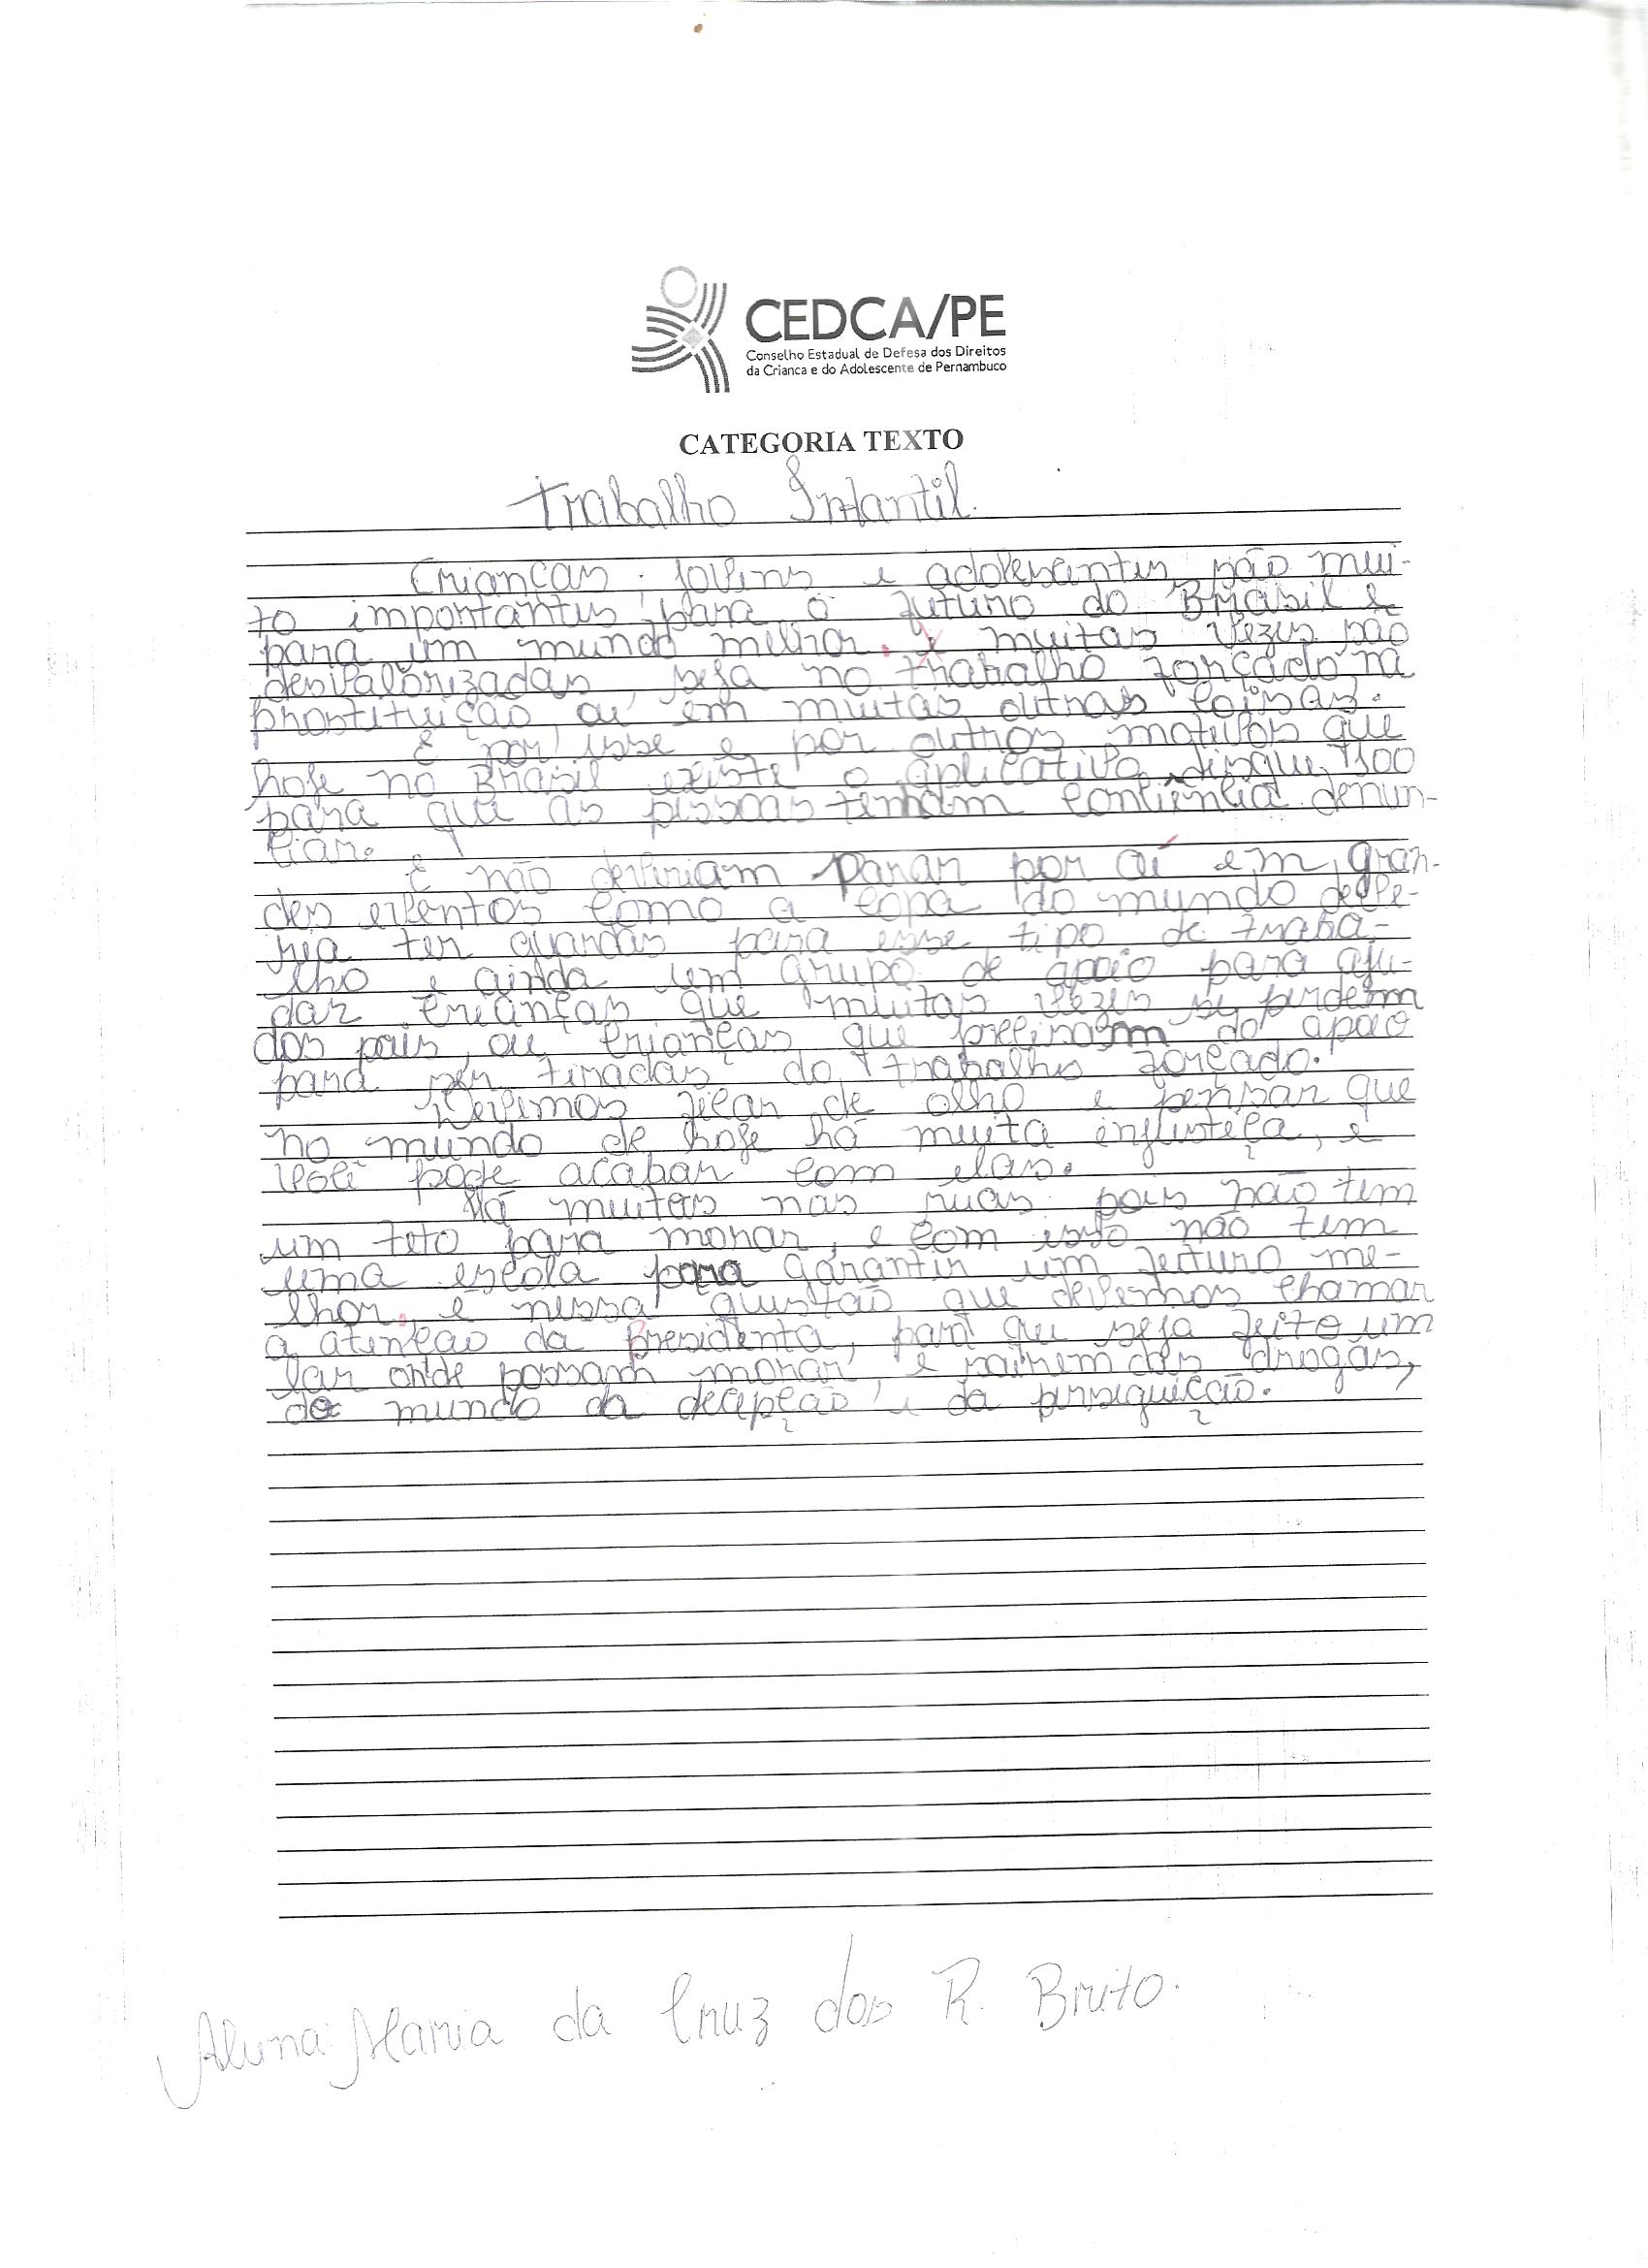 CEDCA/PE
Conselho Estadual de Defesa dos Direitos
da Crianca e do Adolescente de Pernambuco
CATEGORIA TEXTO
Trabalho Infantil.
Crianças, jovens e adolesantes, são mui-
to importantes para o futuro do Brasil e
para um mundo melhor. muitas vezes são
desvalorizadas, seja no trabalho forçado, na
prostituição, ou em muitas outras coisas.
E por isse e por outros motivos que
hoje no Brasil existe o aplicativo disque 100
para que as pessoas tenham denun-
ciar.
E não deveriam parar por aí em gran-
des eventos como a copa do mundo deve-
ria ter guardas para esse tipo de traba-
lho e ainda um grupo de apoio para aju-
dar crianças que muitas vezes se perdem
dos pais, ou crianças que precisam do apoio
para ser tiradas do trabalho forçado.
Devemos ficar de olho e pensar que
no mundo de hoje há muita injusteça, e
você pode acabar com elas.
Há muitas nas ruas pois não tem
um teto para morar, e com isto não tem
uma escola para garantir um futuro me-
lhor. e nessa questão que devemos chamar
a atenção da Presidenta, para que seja feito um
lar onde possam morar, e sairem das drogas,
do mundo da decepção e da perseguição.
Aluna: Maria da Cruz dos R. Brito.